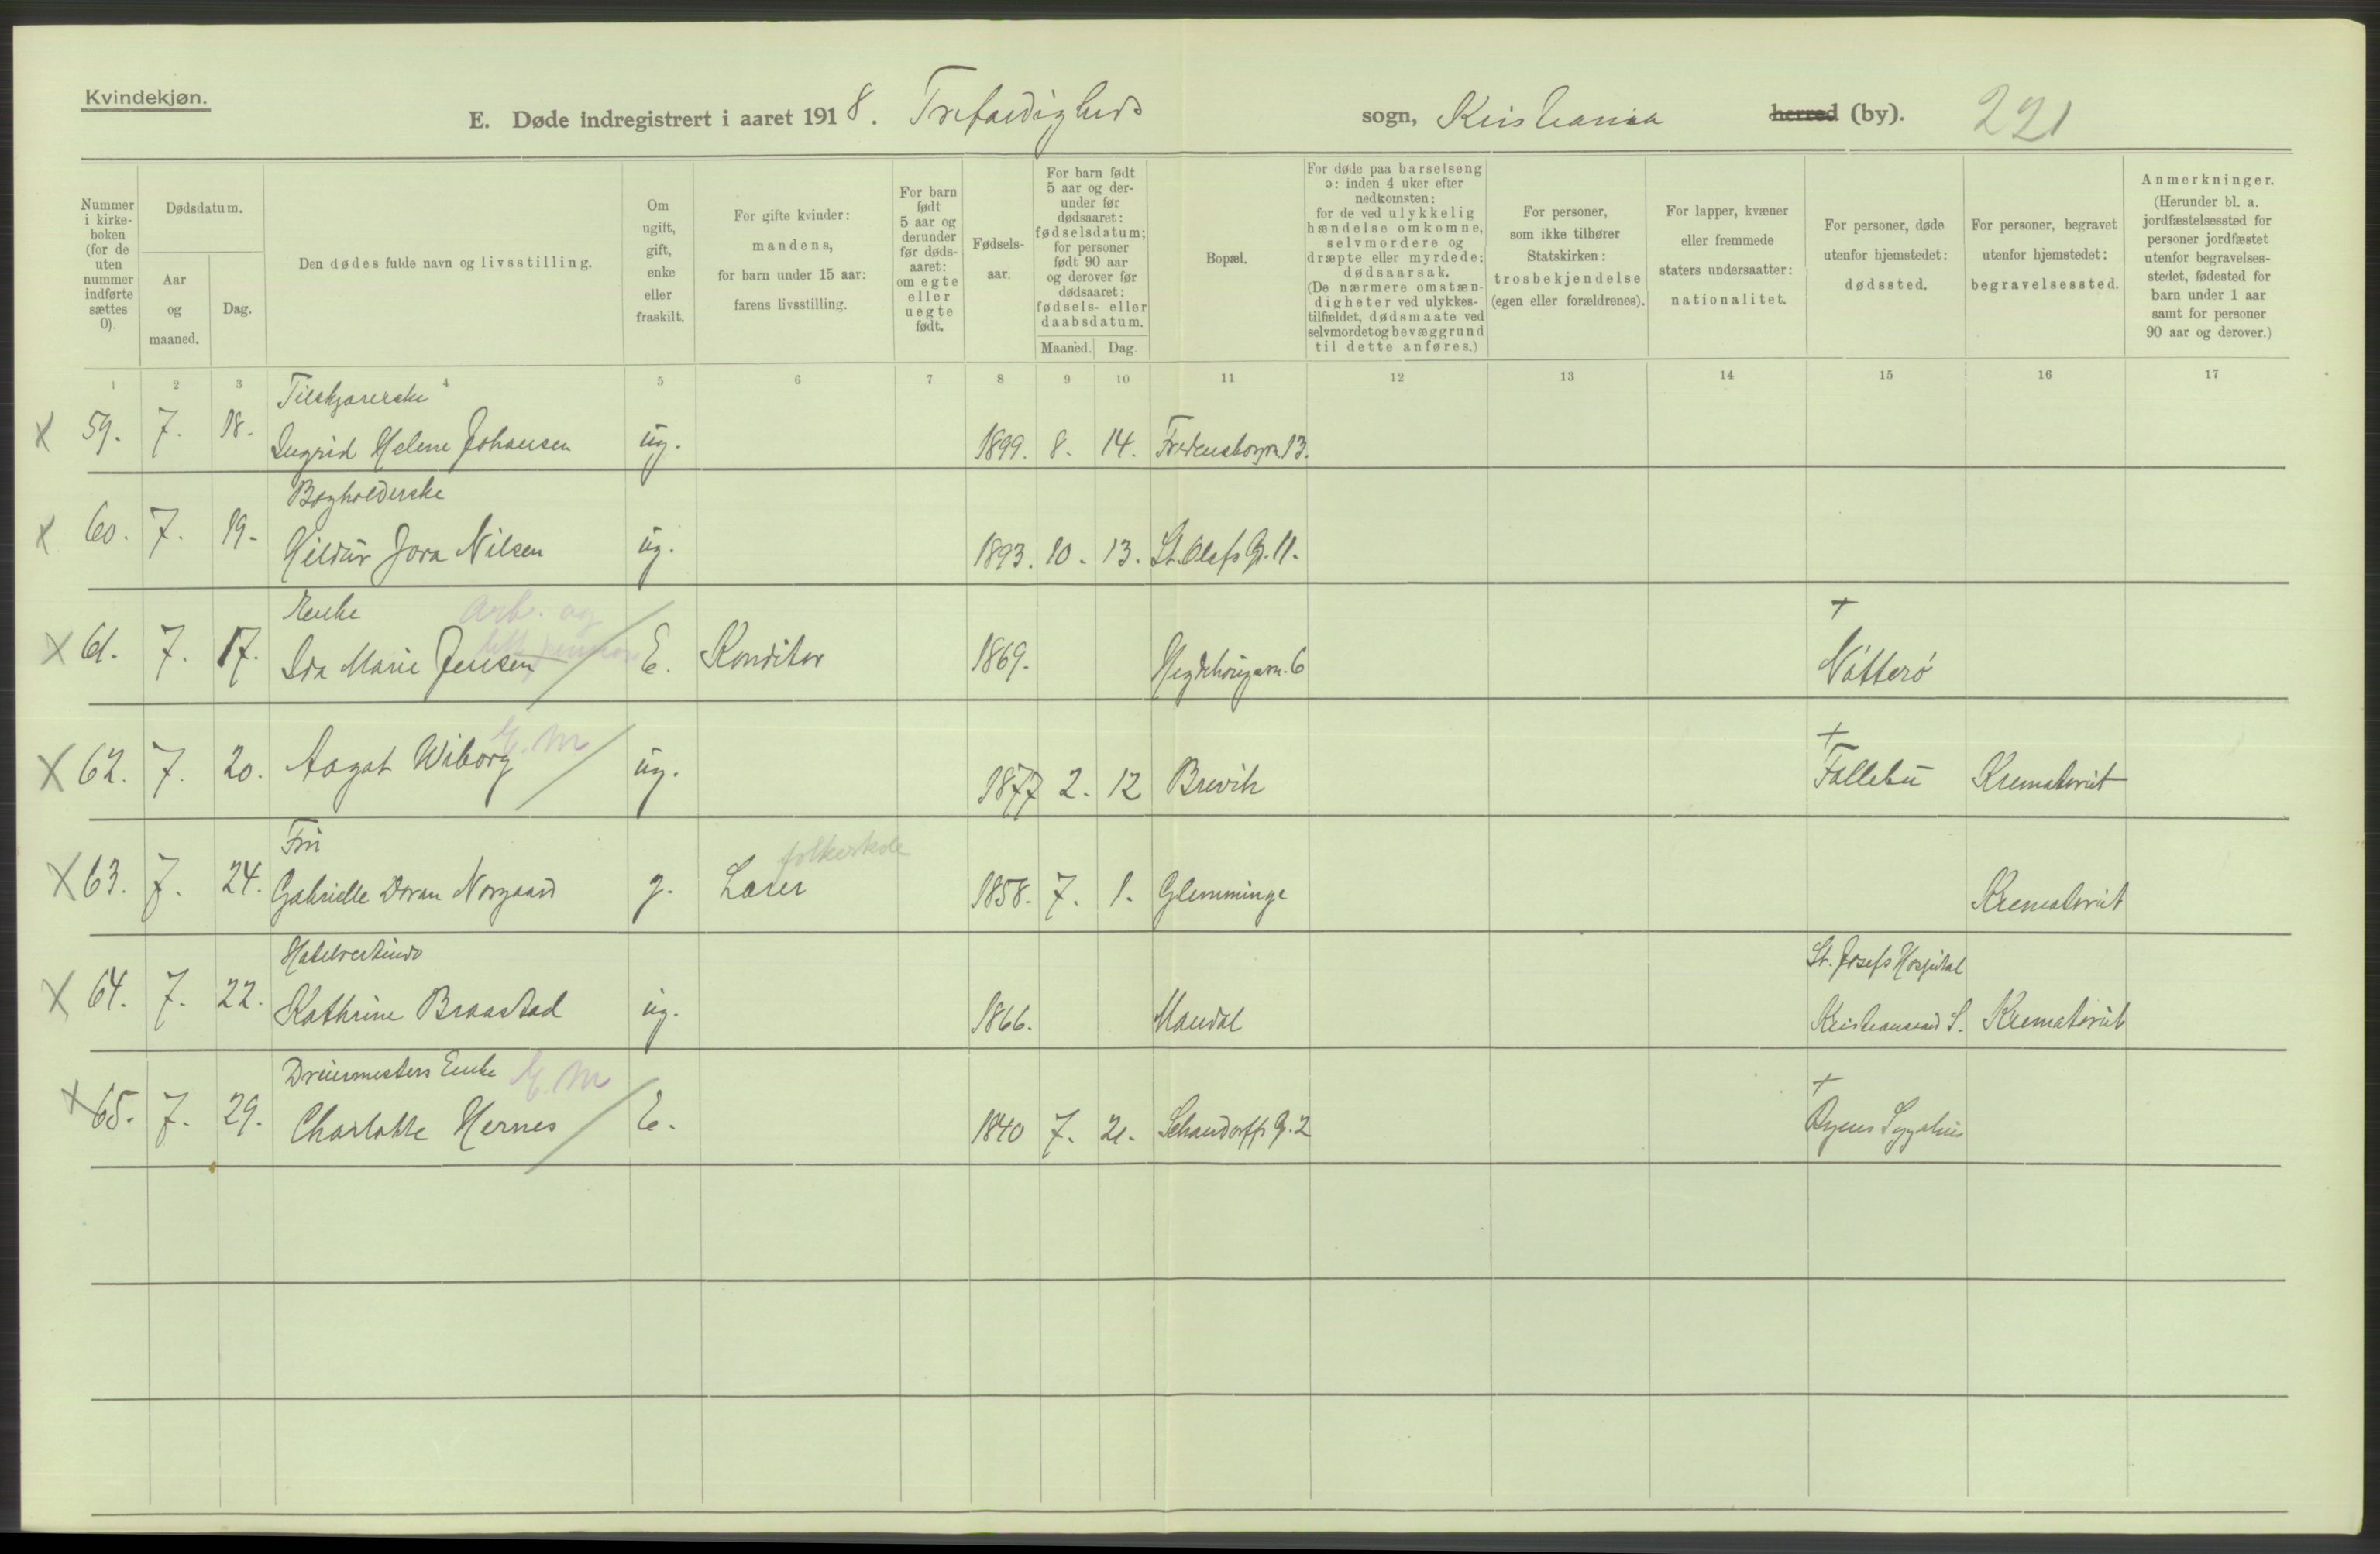 Kvindekjøn.
E. Døde indregistrert i aaret 1918. Trefoldigheds sogn, Kristiania herred (by). 221
Nummer i kirkeboken (for de uten nummer indførte sættes 0).
Dødsdatum.
Aar og maaned.
Dag.
Den dødes fulde navn og livsstilling.
Om ugift, gift, enke eller fraskilt.
For gifte kvinder: mandens, for barn under 15 aar: farens livsstilling.
For barn født 5 aar og derunder før dødsaaret: om egte eller uegte født.
Fødselsaar.
For barn født 5 aar og derunder før dødsaaret: fødselsdatum; for personer født 90 aar og derover før dødsaaret: fødsels- eller daabsdatum.
Maaned. Dag.
Bopæl.
For døde paa barselseng ɔ: inden 4 uker efter nedkomsten: for de ved ulykkelig hændelse omkomne, selvmordere og dræpte eller myrdede: dødsaarsak. (De nærmere omstændigheter ved ulykkestilfældet, dødsmaate ved selvmordet og bevæggrund til dette anføres.)
For personer, som ikke tilhører Statskirken: trosbekjendelse (egen eller forældrenes).
For lapper, kvæner eller fremmede staters undersaatter: nationalitet.
For personer, døde utenfor hjemstedet: dødssted.
For personer, begravet utenfor hjemstedet: begravelsessted.
Anmerkninger. (Herunder bl. a. jordfæstelsessted for personer jordfæstet utenfor begravelsesstedet, fødested for barn under 1 aar samt for personer 90 aar og derover.)
1 2 3 4 5 6 7 8 9 10 11 12 13 14 15 16 17
Tilskjærerske
x 59. 7. 18. Ingrid Helene Johansen ug. 1899. 8. 14. Fredensborgvn. 13.
Bogholderske
x 60. 7. 19. Hildur Jora Nilsen ug. 1893. 10. 13. St. Olafs G. 11.
Enke Arb. og +
x 61. 7. 17. Ida Marie Jensen E. Konditor 1869. Hegdehaugsvn. 6 Nøtterø
E. M +
x 62. 7. 20. Aagot Wiborg ug. 1877 2. 12 Brevik Follebu Krematoriet
Fru folkeskole
x 63. 7. 24. Gabrielle Dovan Norgaard g. Lærer 1858. 7. 1. Glemminge Krematoriet
Hotelvertinde St. Josefs Hospital
x 64. 7. 22. Kathrine Braastad ug. 1866. Mandal Kristiansand S. Krematoriet
Dreiermesters Enke E. M +
x 65. 7. 29. Charlotte Hernes E. 1840 7. 21. Schandorffs G. 2 Sygehus